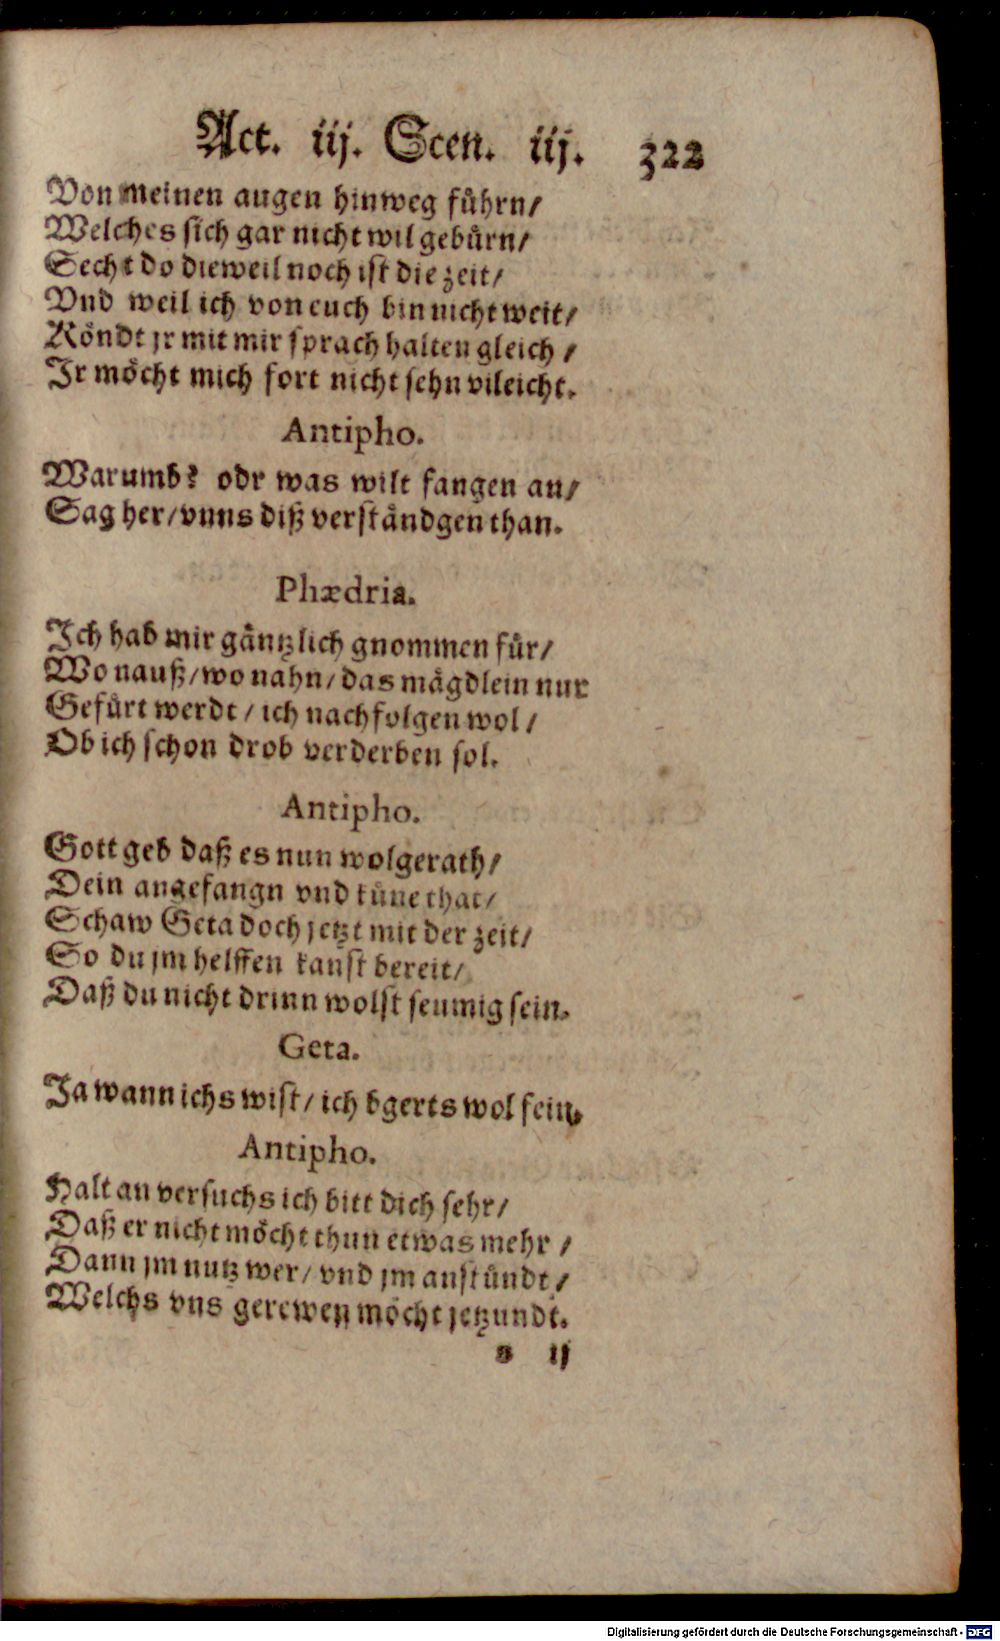 Act. iij. Scen. iij. 322
Von meinen augen hinweg fuͤhrn/
Welches sich gar nicht wil gebuͤrn/
Secht do dieweil noch ist die zeit/
Vnd weil ich von euch bin nicht weit/
Koͤndt jr mit mir sprach halten gleich/
Jr moͤcht mich fort nicht sehn vileicht.
Antipho.
Warumb? odr was wilt fangen an/
Sag her/vnns diß verstaͤndgen than.
Phædria.
Ich hab mir gaͤntzlich gnommen fuͤr/
Wo nauß/wo nahn/das maͤgdlein nur
Gefuͤrt werdt/ich nachfolgen wol/
Ob ich schon drob verderben sol.
Antipho.
Gott geb daß es nun wolgerath/
Dein angefangn vnd kuͤne that/
Schaw Geta doch jetzt mit der zeit/
So du jm helffen kanst bereit/
Daß du nicht drinn wolst seumig sein.
Geta.
Ja wann ichs wist/ich bgerts wol fein.
Antipho.
Halt an versuchs ich bitt dich sehr/
Daß er nicht moͤcht thun etwas mehr/
Dann jm nutz wer/vnd jm anstuͤndt/
Welchs vns gerewen moͤcht jetzundt.
s ij
Digitalisierung gefördert durch die Deutsche Forschungsgemeinschaft - DFG